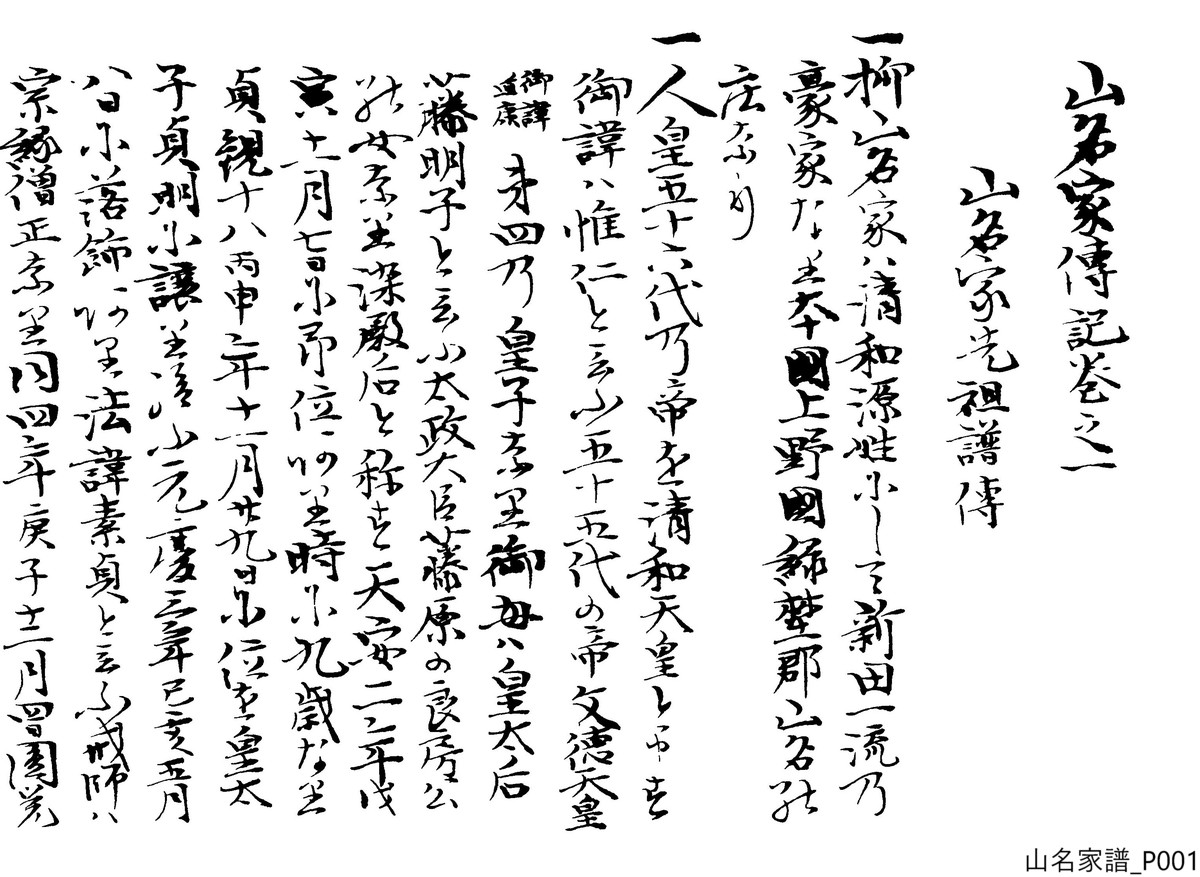 山名家傳記巻之一
山名家先祖譜傳
一抑山名家ハ清和源姓にして新田一流乃
豪家なり大十國上野國緑埜郡山名能
庄なり
一人皇五十六代乃帝を清和天皇と申す
御諱ハ惟仁と云ふ五十五代の帝文徳天皇
御諱道康
第四乃皇子なり御母ハ皇太后
藤明子と云ふ太政大臣藤原の良房公
能女なり深殿后と称す天安二年戊
寅十一月七日に即位あり時に九歳なり
貞観十八丙申年十一月廿九日に位を皇太
子貞明に譲り給ふ元慶三年己亥五月
八日に落飾あり法諱素貞と云ふ戒師ハ
宗叡僧正なり同四年庚子十二月四日圓覚
山名家譜_P001